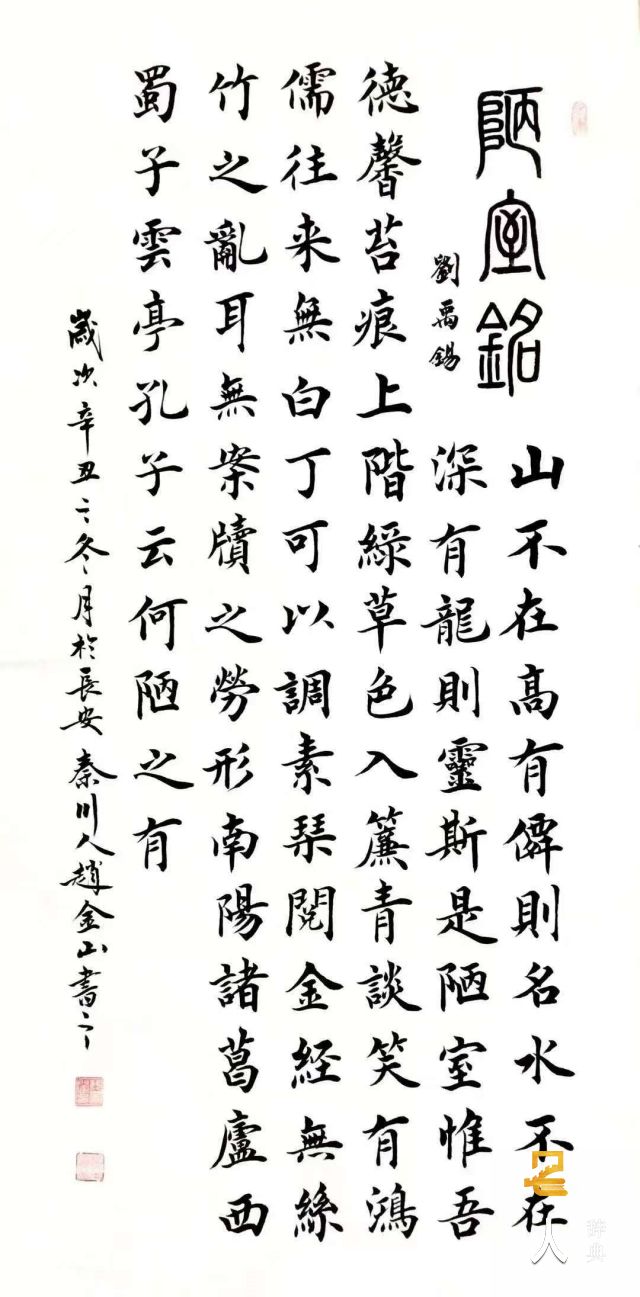 陋室銘
山不在高有僊則名水不在
劉禹錫
深有龍則靈斯是陋室惟吾
德馨苔痕上階緑草色入簾青談笑有鴻
儒往来無白丁可以調素琹閲金經無絲
竹之亂耳無案牘之勞形南陽諸葛廬西
蜀子雲亭孔子云何陋之有
歲次辛丑之冬月於長安秦川人趙金山書之
人
辞典